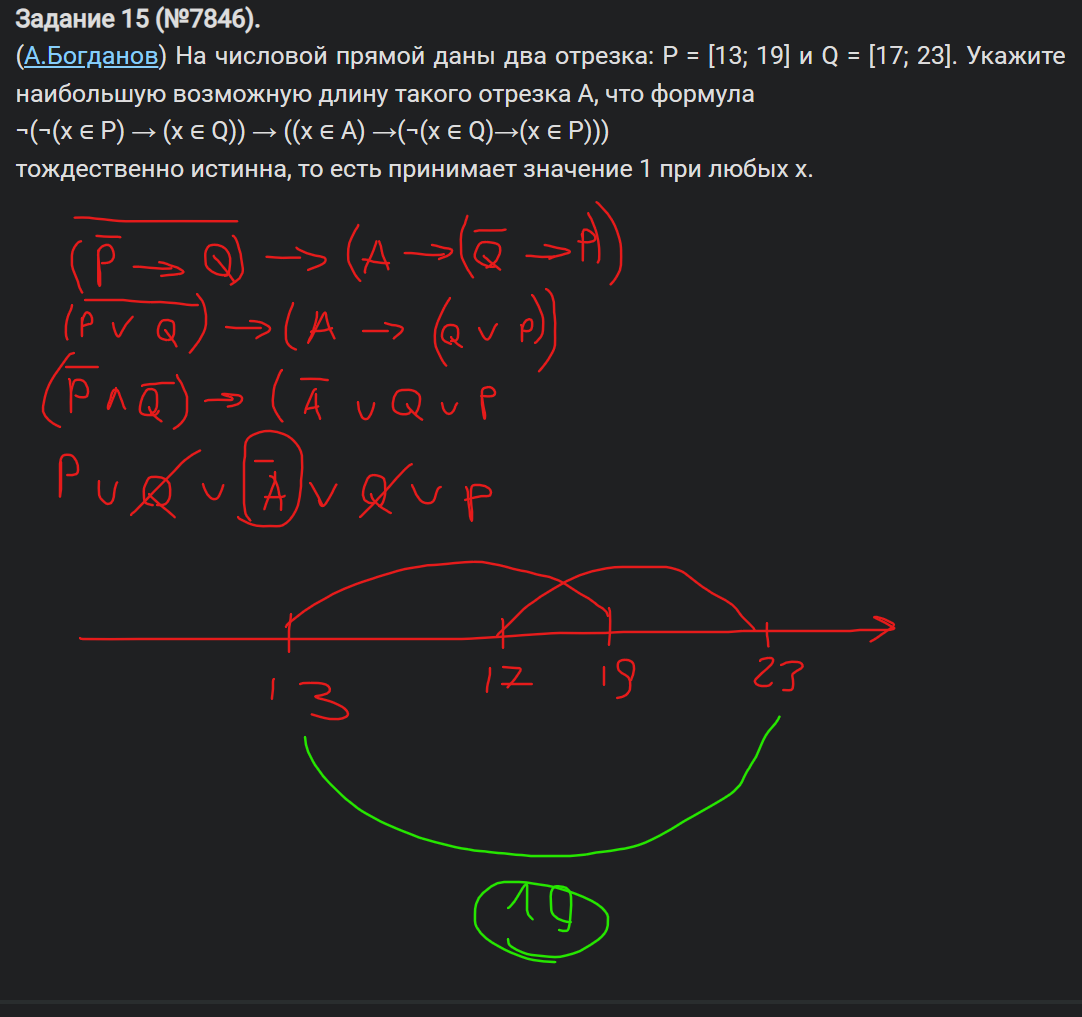 Задание 15 (№7846).
(А.Богданов) На числовой прямой даны два отрезка: P = [13; 19] и Q = [17; 23]. Укажите
наибольшую возможную длину такого отрезка A, что формула
¬(¬(x ∈ P) → (x ∈ Q)) → ((x ∈ A) →(¬(x ∈ Q)→(x ∈ P)))
тождественно истинна, то есть принимает значение 1 при любых x.
(P̅ → Q)̅ → (A → (Q̅ → P))
(P ∨ Q)̅ → (A → (Q ∨ P))
(P̅ ∧ Q̅) → (A̅ ∨ Q ∨ P
P ∨ Q ∨ A̅ ∨ Q ∨ P
13 17 19 23
19